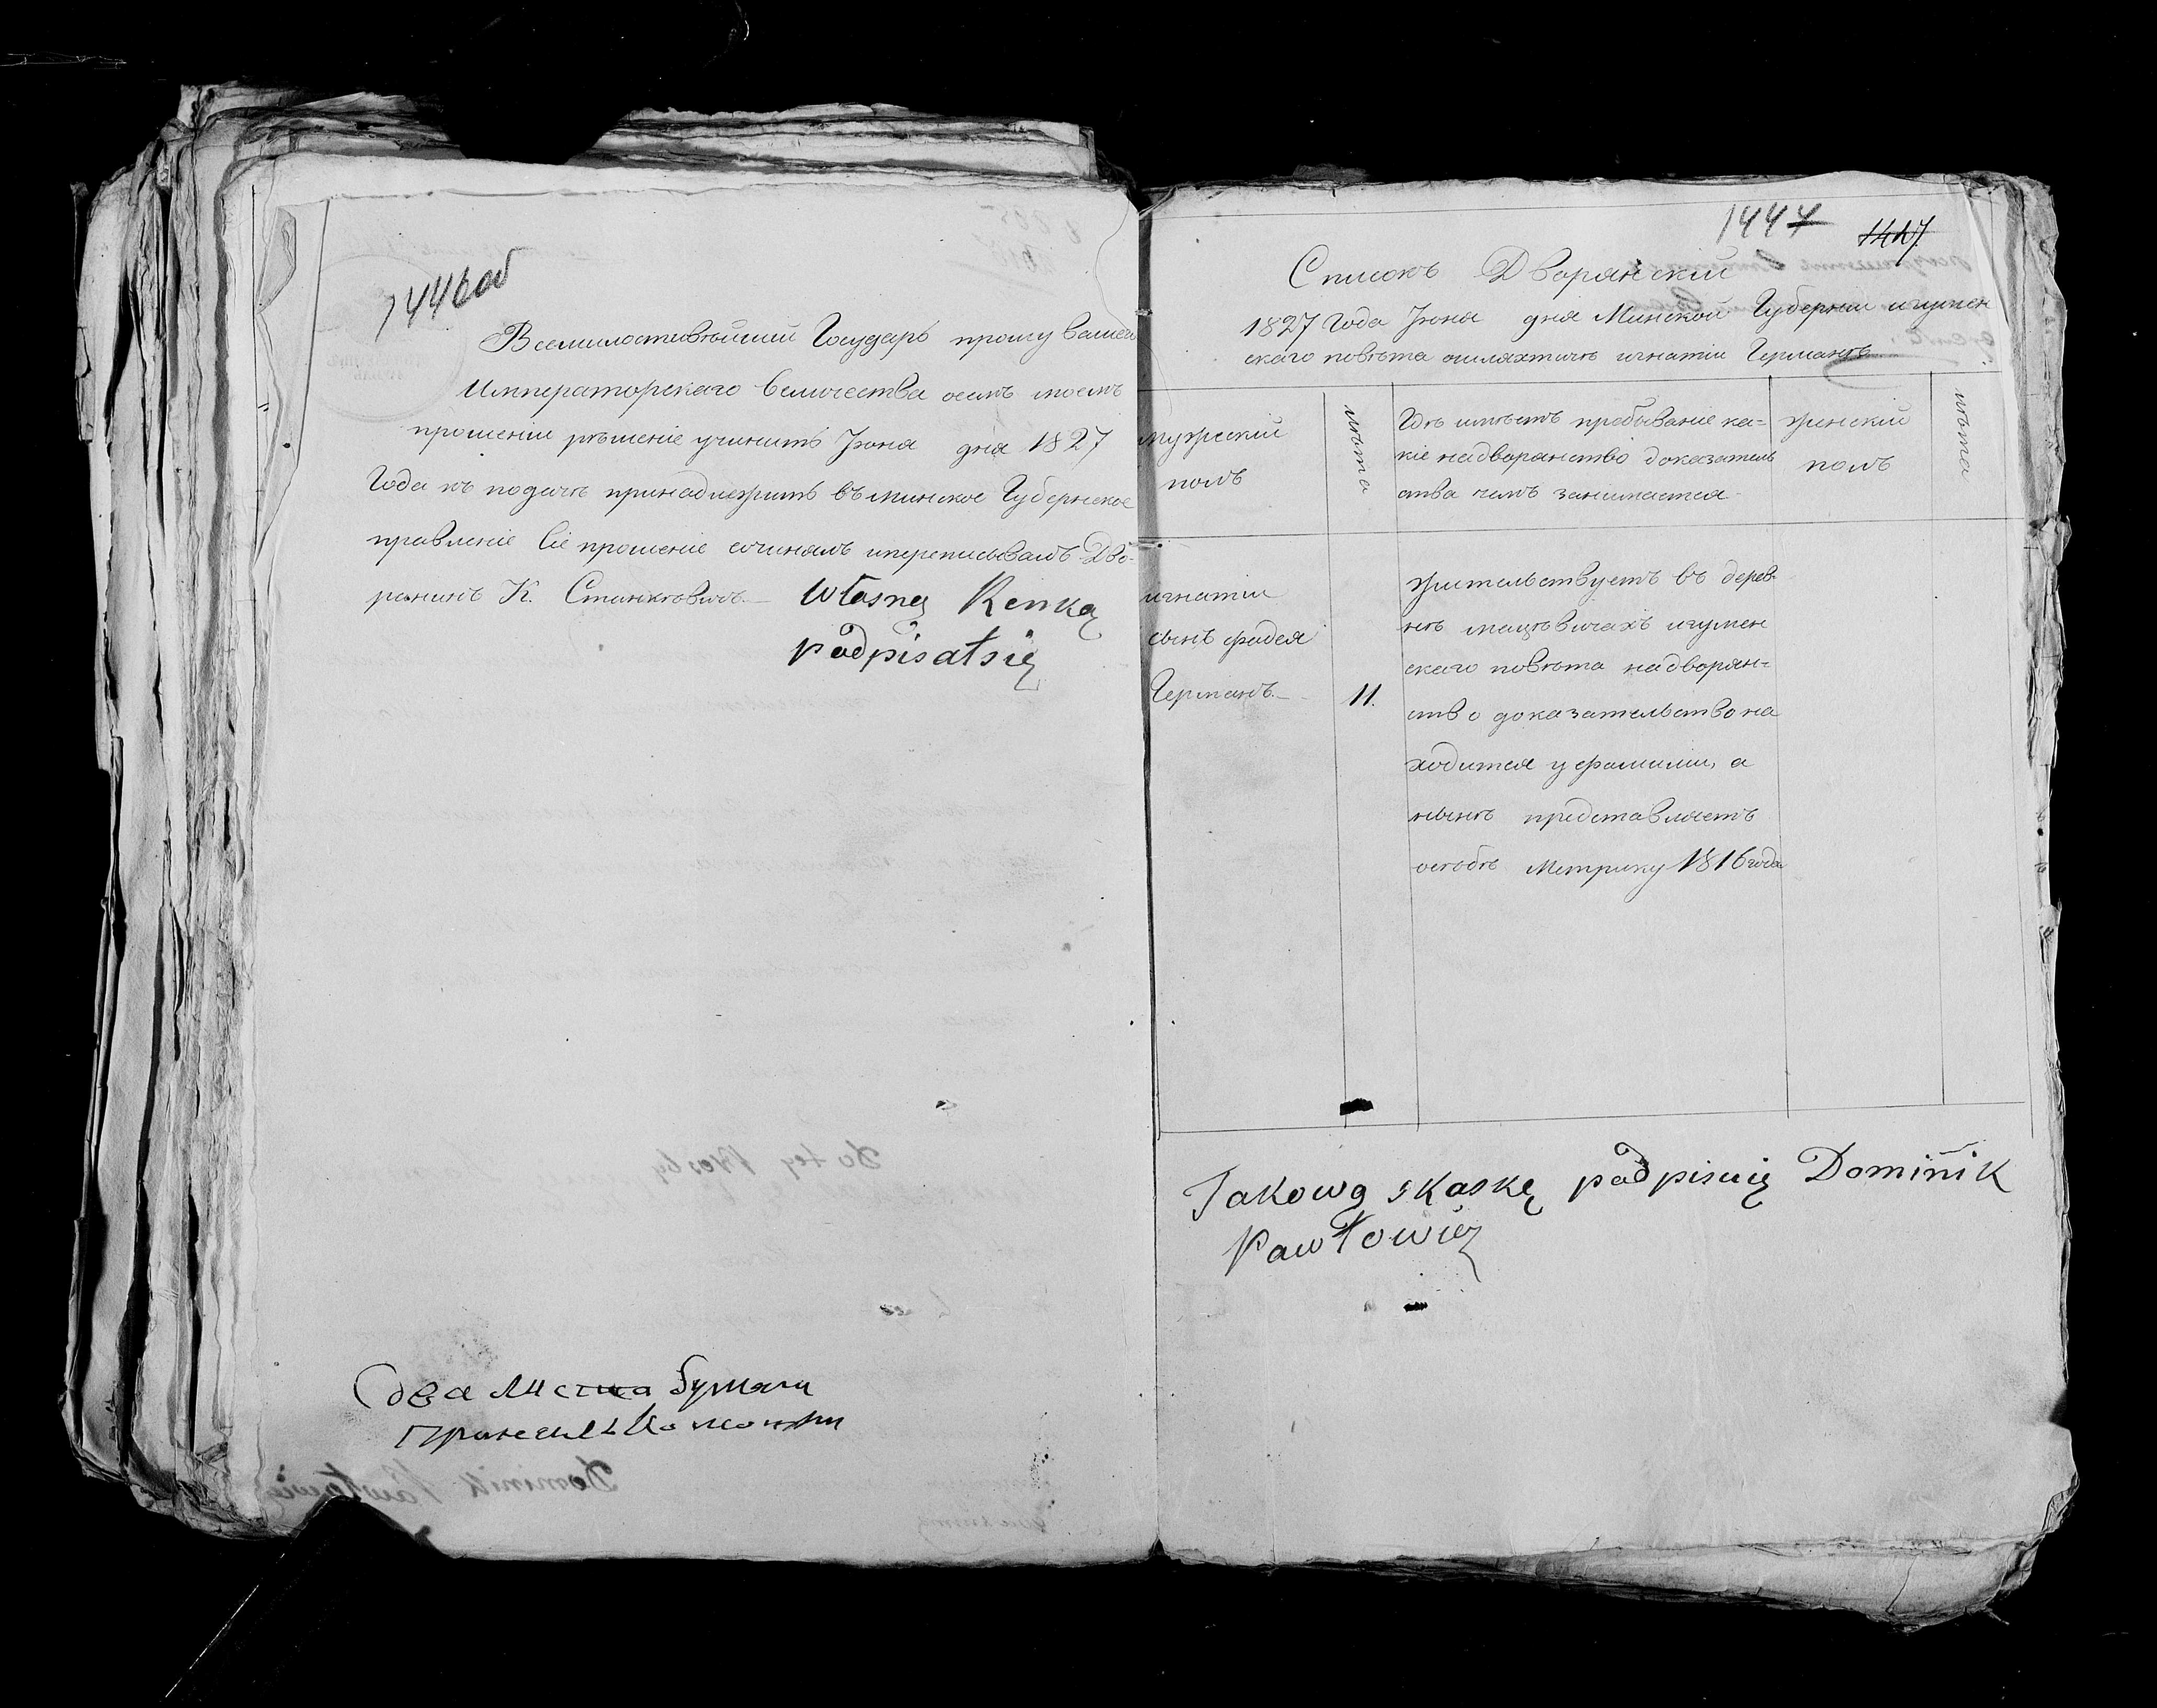 1446об
Всемилостивѣйшій Государь прошу вашего
Императорскаго Величества осемъ моемъ
прошеніи рѣшеніе учинить Іюня дня 1827
Года къ подачѣ принадлежитъ въ минское Губернское
правленіе Сіе прошеніе сочинялъ ипереписывалъ Дво-
рянинъ К. Станкѣвичъ. Własną Renką
podpisałsię
два листа бумаги
1447 1447
Списокъ Дворянскій
1827 Года Іюня дня Минской Губерніи игумен
скаго повѣта ошляхтичѣ игнатіи Германѣ
мужескій
полъ
лѣта
Гдѣ имѣетъ пребываніе ка-
кіе надворянство доказатель
ства чемъ занимается
женскій
полъ
лѣта
игнатіи
сынъ фадея
Германъ.
11.
жительствуетъ въ дерев-
нѣ мацѣвичахъ игумен
скаго повѣта надворян-
ство доказательство на
ходится уфамиліи, а
нынѣ представляетъ
осѣбѣ Метрику 1816 года
Jakową skaskę podpisuię Dominik
Pawłowicz